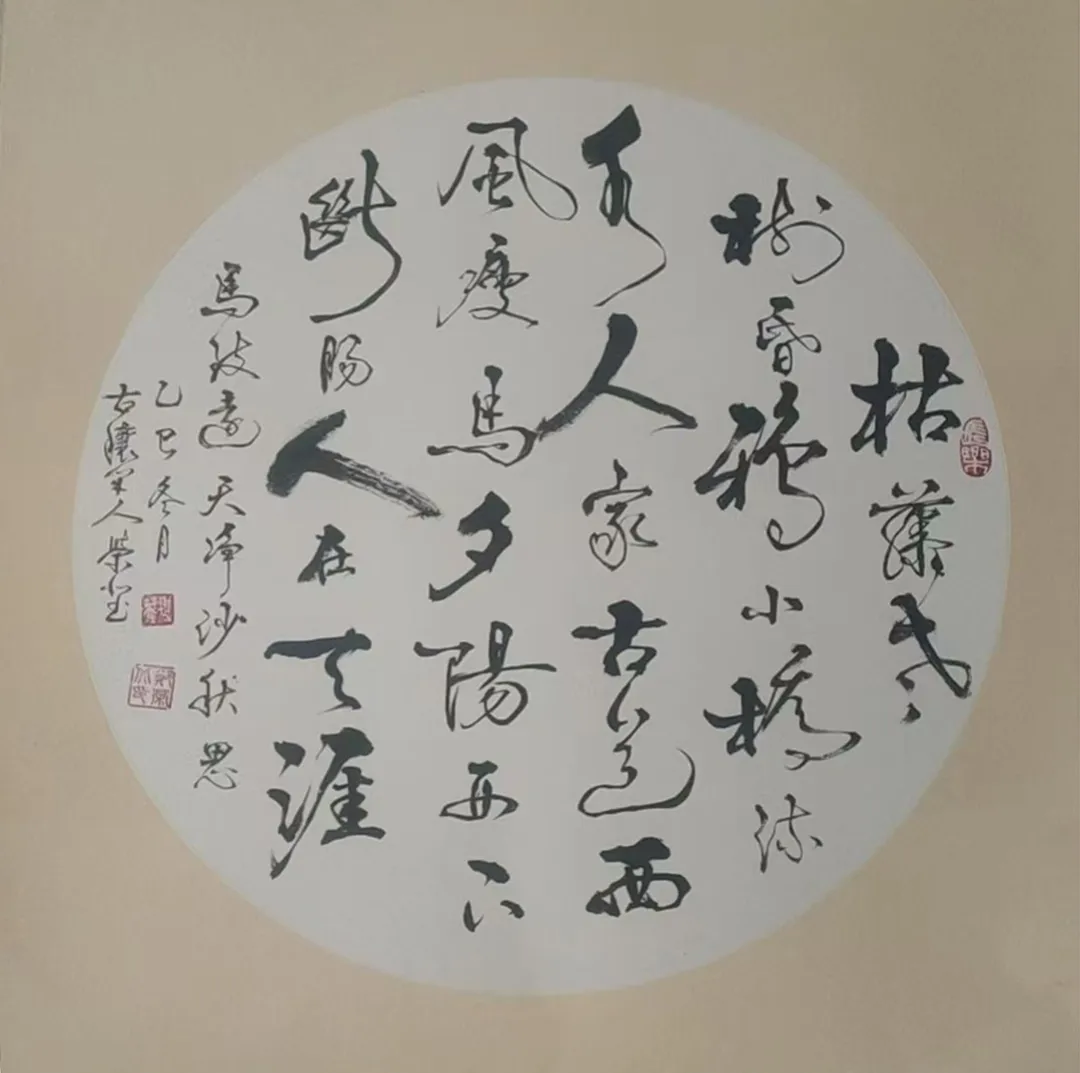 枯藤老
樹昏鴉小橋流
水人家古道西
風瘦馬夕陽西下
斷腸人在天涯
馬致遠天净沙秋思
乙巳冬月
古穰人榮
長樂